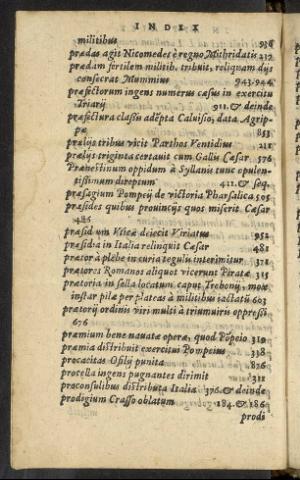 INDEX
militibus 936
prædas agit Nicomedes è regno Mithridatis 217
prædam fertilem militib. tribuit, reliquam dijs
consecrat Mummius 943.944
præfectorum ingens numerus cæsus in exercitu
Triarij 911. & deinde
præfectura classis adẽpta Caluisio, data Agrip-
pæ 853
prælijs tribus vicit Parthos Ventidius 211
prælijs triginta certauit cum Gallis Cæsar 576
Prænestinum oppidum à Syllanis tunc opulen-
tissimum direptum 411. & seq.
præsagium Pompeij de victoria Pharsalica 505
præsides quibus prouincijs quos miserit Cæsar
485
præsidium Vticæ deiecit Viriatus 952
præsidia in Italia relinquit Cæsar 481
prætor à plebe in curia tegulis interimitur 371
prætores Romanos aliquot vicerunt Piratæ 315
prætoria in sella locatum caput Trebonij, mox
instar pilæ per plateas à militibus iactatũ 603
prætorij ordinis viri multi à triumuiris oppressi
676
præmium bene nauatæ operæ, quod Põpeio 319
præmia distribuit exercitui Pompeius 338
procacitas Ofilij punita 876
procella ingens pugnantes dirimit 311
proconsulibus distributa Italia 376. & deinde
prodigium Crasso oblatum 184. & 186
prodi